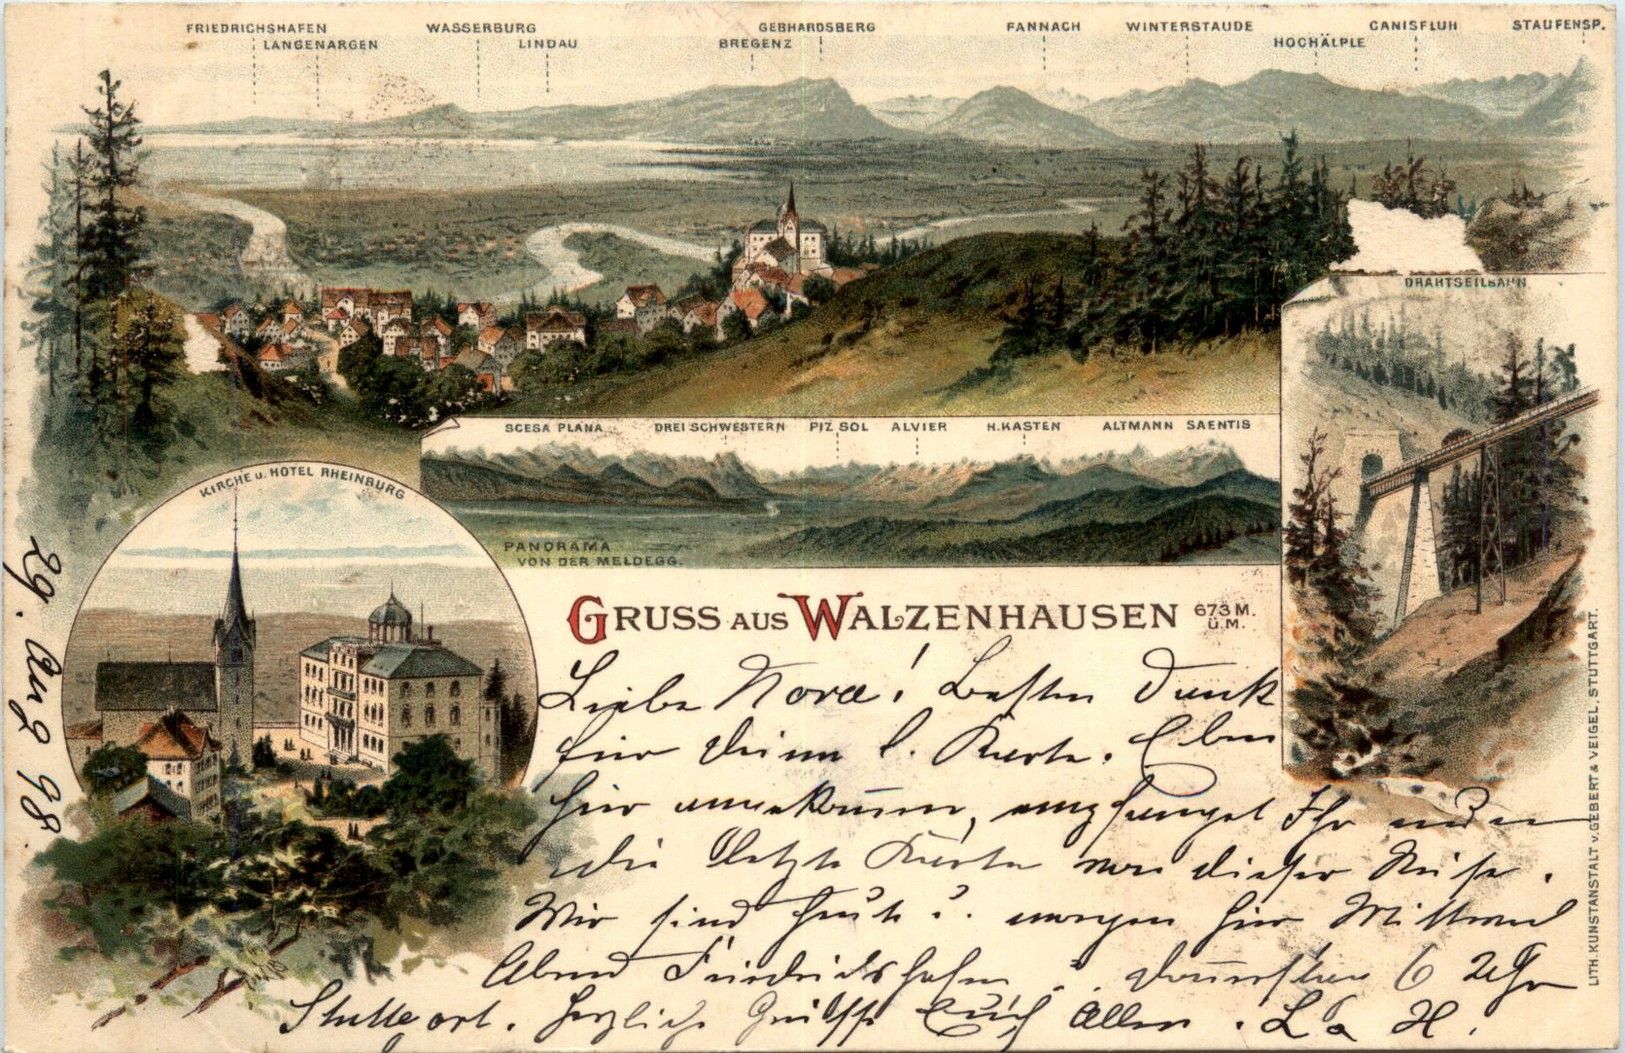 FRIEDRICHSHAFEN WASSERBURG GEBHARDSBERG FANNACH WINTERSTAUDE CANISFLUH STAUFENSP.
LANGENARGEN LINDAU BREGENZ HOCHÄLPLE
DRAHTSEILBAHN
SCESA PLANA DREI SCHWESTERN PIZ SOL ALVIER H.KASTEN ALTMANN SAENTIS
PANORAMA
VON DER MELDEGG.
KIRCHE u. HOTEL RHEINBURG
GRUSS AUS WALZENHAUSEN 673 M.
Ü.M.
29. Aug 98.
Liebe Nora! Besten Dank
für Deine l. Karte. Eben
hier angekommen, empfanget Ihr
die letzte Karte von dieser Reise.
Wir sind heute u. morgen hier Mittwoch
Abend Friedrichshafen . 6 Uhr
Stuttgart. Herzliche Grüße Euch Allen. L a H.
LITH. KUNSTANSTALT v. GEBERT & VEIGEL, STUTTGART.